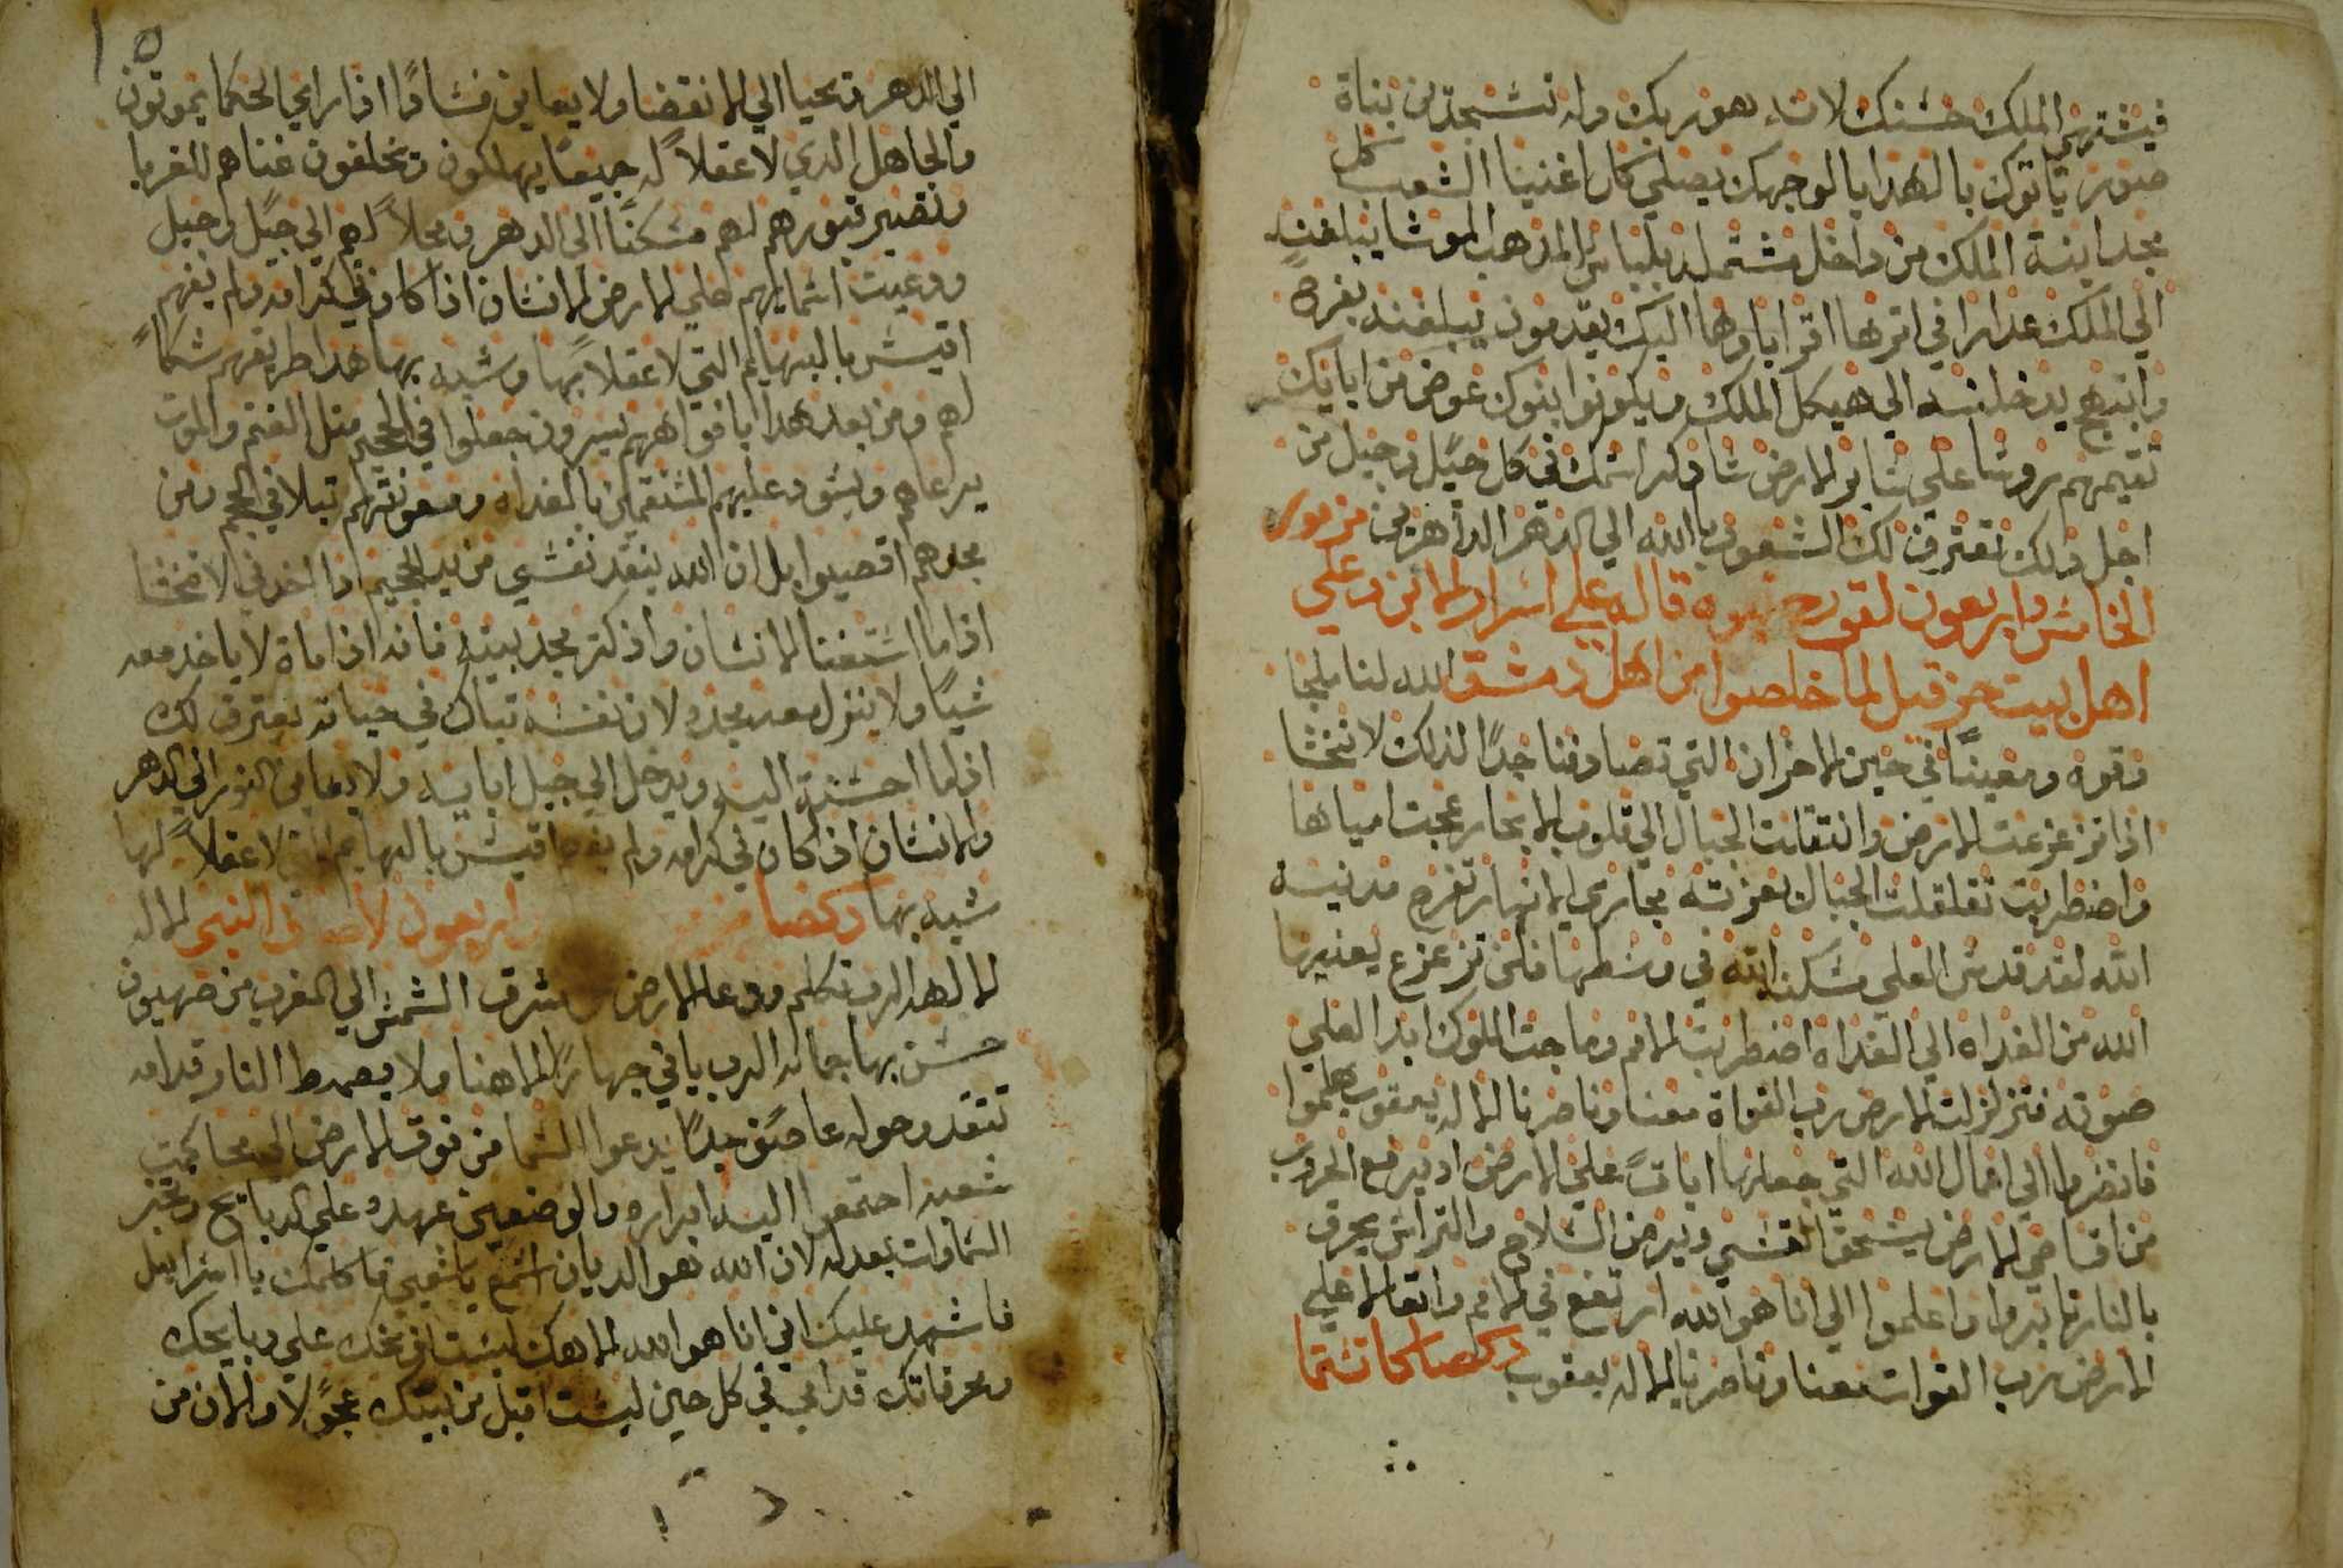 فيشتهي الملك حسنك لانه هو ربك وله تسجدين بناة
صور ياتوك بالهدايا لوجهك يصلي كل اغنيا الشعب كل
مجد ابنة الملك من داخل مشتمله بلباس المدهب الموشا يبلغن
الي الملك عدارا في اترها اقرباوها اليك يقدمون يبلغن بفرح
وابتهج يدخلنه الي هيكل الملك ويكونوا بنوك عوض من ابايك
تقيمهم روسا علي ساير الارض سادكر اسمك في كل جيل وجيل من
اجل دلك تعترف لك الشعوب يا الله الي الدهر الداهرين مزمور
الخامس واربعون لقورح نبوه قاله علي اسرار الابن وعلي
اهل بيت حزقيل لما خلصوا من اهل دمشق الله لنا ملجا
وقوه ومعينًا في حين الاحزان التي تصادفنا جدًا لدلك لا نخشا
ادا تزعزعت الارض وانتقلت الجبال الي قلوب الابحار عجت امياها
واضطربت تقلقلت الجبال بعزته مجاري الانهار تفرح مدنية
الله لقد قدس العلي مسكنه الله في وسطها فلن تزعزع يعنيها
الله من الغداه الي الغداه اضطربت الامم وماجت الملوك ابدا العلي
صوته فتزلزلت الارض رب القواة معنا وناصرنا الاله يعقوب هلموا
فانضروا الي اعمال الله التي جعلها اياتً علي الارض اد يرفع الحروب
من اقاصي الارض يسحق القسي ويرض السلاح والتراس يحرق
بالنار تابروا واعلموا اني انا هو الله ارتفع في الامم واتعالا علي
الارض رب القوات معنا وناصرنا الاله يعقوب دكصا كاتسما
١٥
الي الدهر ويحيا الي الانقضا ولا يعاين فسادًا ادا راي الحكما يموتون
والجاهل الدي لا عقلاً له جميعًا يهلكون ويخلفون غناهم للغربا
وتصير قبورهم لهم مسكنًا الي الدهر ومحلاً لهم الي جيل وجيل
ودعيت اسمايهم علي الارض الانسان ادا كان في كرامه ولم يفهم
اقيس بالبهايم التي لا عقلاً لها وشبه بها هدا طريقهم شكا
لهم ومن بعد هدا بافواههم يسرون جعلوا في الجحيم متل الغنم والموت
يرعاهم ويسود عليهم المستقمين بالغداه ومعونتهم تبلا في الجحيم ومن
مجدهم اقصيوا بل ان الله ينقد نفسي من يد الجحيم ادا اخدني لا تخشا
ادا ما استغنا الانسان وادا كتر مجد بيته فانه ادا ماة لا ياخد معه
شيًا ولا ينزل معه مجده لان نفسه تبارك في حياته يعترف لك
ادا ما احسنت اليه ويدخل الي جيل ابايه ولا يعاين النور الي الدهر
والانسان ادا كان في كرامه ولم يفهم اقيس بالبهايم التي لا عقلاً لها
شبه بها دكصا اربعون لاصاف النبي الاله
الالهه الرب تكلم ودعا الارض من مشرق الشمس الي المغرب من صهيون
حسن بها جماله الرب ياتي جهارًا الاهنا ولا يصمت النار قدامه
تتقد وحوله عاصفٍ جدًا يدعوا السما من فوق الارض الي محاكمت
شعبه اجتمعوا اليه ابراره والوضعين عهده علي الدبايح وتخبر
السماوات بعدله لان الله هو الديان اسمع يا شعبي فاكلمك يا اسراييل
فاشهد عليك اني انا هو الله الاهك ليست ابكتك علي دبايحك
ومحرقاتك قدامي في كل حين ليست اقبل من بيتك عجولا ولا من